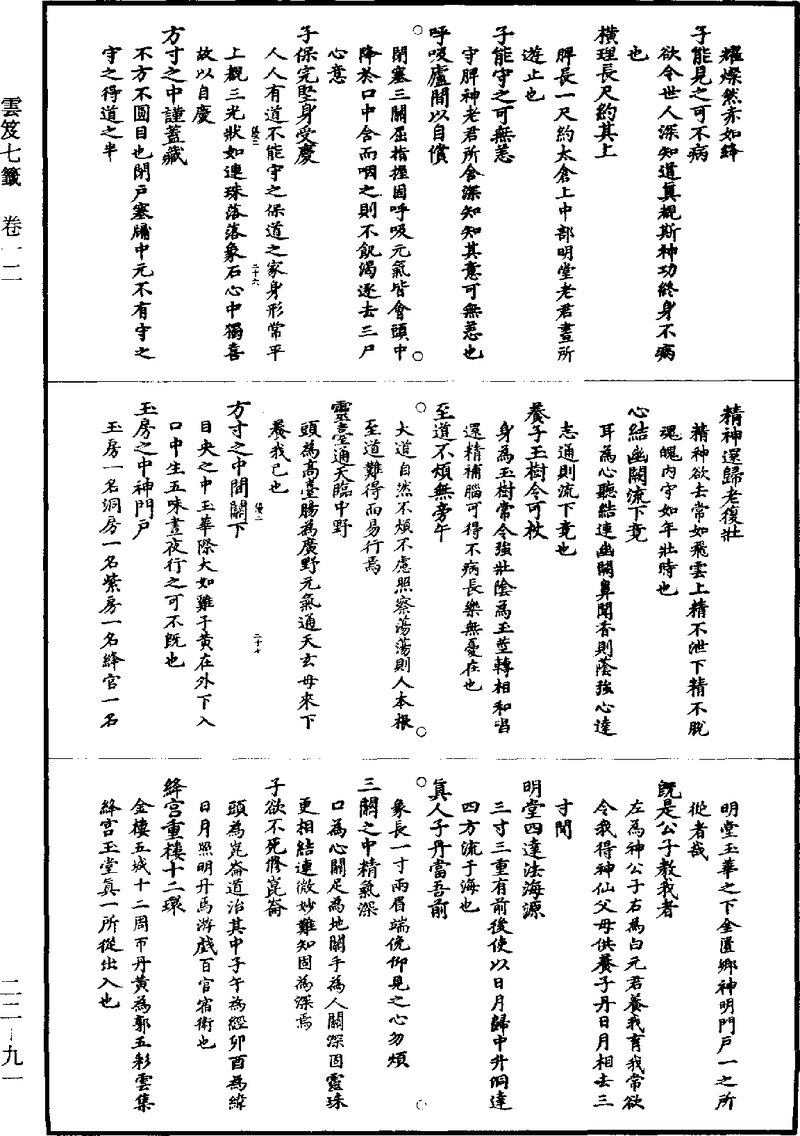 雲笈七籤 卷一二
耀燦然赤如絳
子能見之可不病
欲令世人深知道真親斯神功終身不病
也
橫理長尺約其上
脾長一尺約太倉上中部明堂老君晝所
遊止也
子能守之可無恙
守脾神老君所舍深知知其意可無恙也
呼吸廬間以自償
閉塞三關屈指握固呼吸元氣皆會頭中
降於口中含而咽之則不飢渴逐去三尸
心意
子保完堅身受慶
人人有道不能守之保道之家身形常平
上觀三光狀如連珠落落象石心中獨喜
故以自慶
方寸之中謹蓋藏
不方不圓目也閉戶塞牖中元不有守之
守之得道之半
二十六
精神還歸老復壯
精神欲去常如飛雲上精不泄下精不脫
魂魄內守如年壯時也
心結幽關流下竟
耳為心聽結連幽關鼻聞香則蔭強心達
志通則流下竟也
養子玉樹令可杖
身為玉樹常令強壯陰為玉莖轉相和唱
還精補腦可得不病長樂無憂在也
至道不煩無旁午
大道自然不煩不慮照察蕩蕩則人本根
至道難得而易行焉
靈臺通天臨中野
頭為高臺腸為廣野元氣通天玄母來下
養我己也
方寸之中間關下
目央之中玉華際大如雞子黃在外下入
口中生五味晝夜行之可不既也
玉房之中神門戶
玉房一名洞房一名紫房一名絳宮一名
二十七
明堂玉華之下金匱鄉神明門戶一之所
從者哉
既是公子教我者
左為神公子右為白元君養我育我常欲
令我得神仙父母供養子丹日月相去三
寸間
明堂四達法海源
三寸三重有前後使以日月歸中升洞達
四方流于海也
真人子丹當吾前
象長一寸兩眉端俛仰見之心勿煩
三關之中精氣深
口為心關足為地關手為人關深固靈珠
更相結連微妙難知固為深焉
子欲不死修崑崙
頭為崑崙道治其中子午為經卯酉為緯
日月照明丹馬游戲百官宿衛也
絳宮重樓十二環
金樓五城十二周帀丹黃為郭五彩雲集
絳宮玉堂真一所從出入也
二二-九一